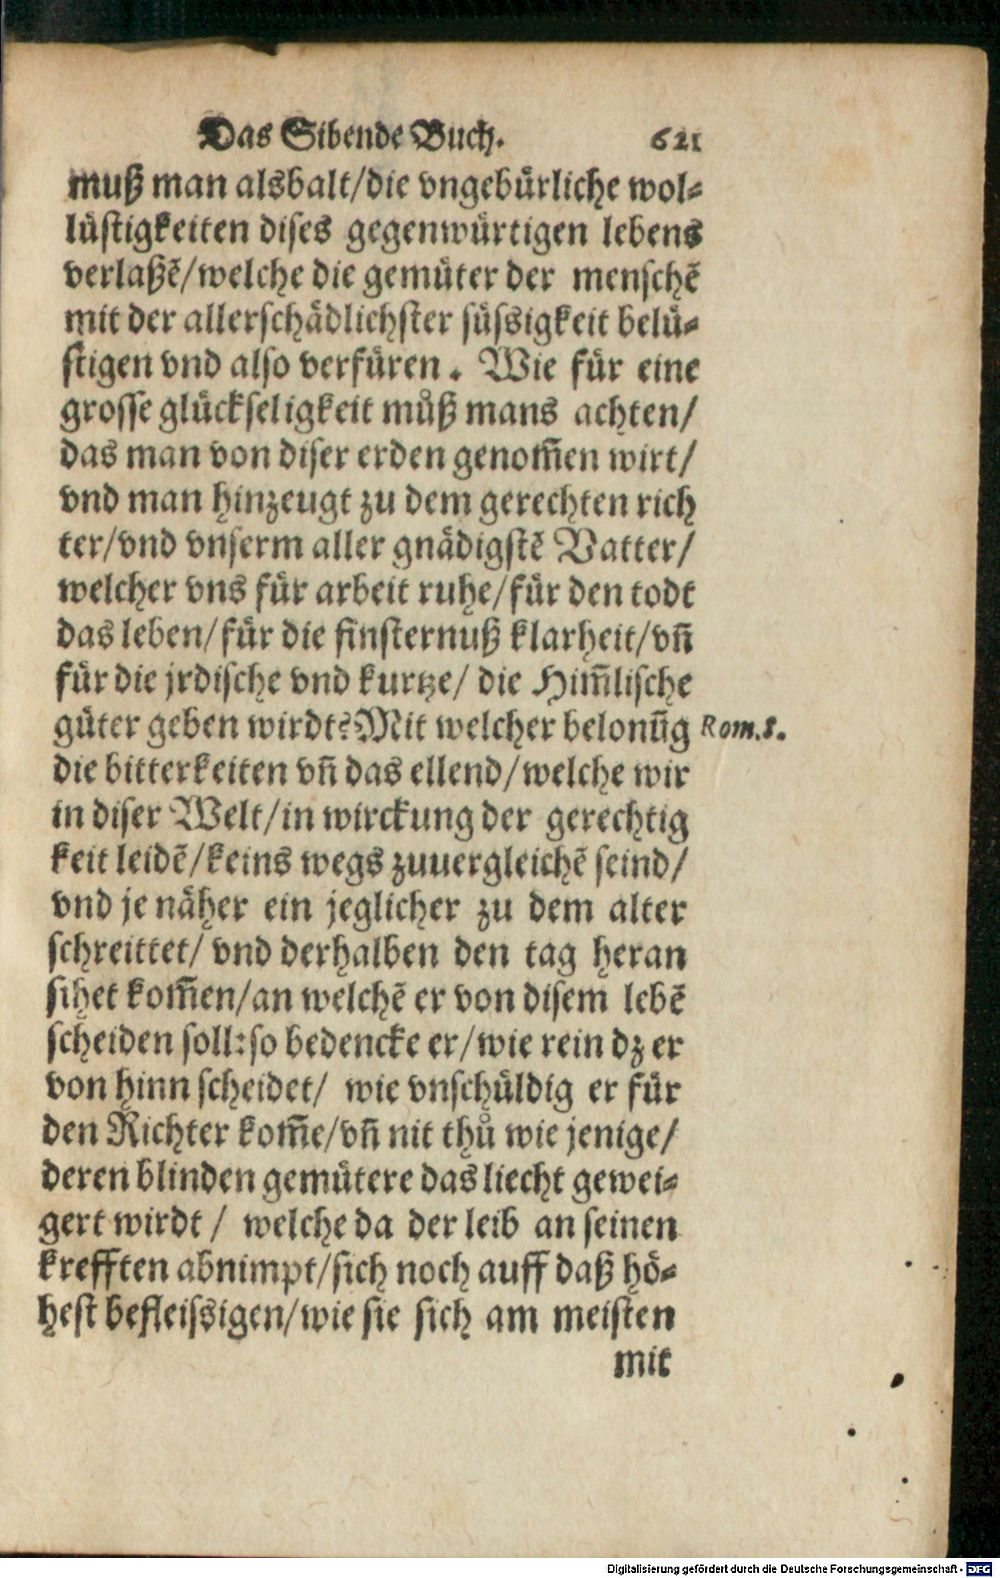 Das Sibende Buch. 621
muß man alsbalt/die vngebürliche wol-
lüstigkeiten dises gegenwürtigen lebens
verlaßẽ/welche die gemüter der menschẽ
mit der allerschädlichster süssigkeit belü-
stigen vnd also verfüren. Wie für eine
grosse glückseligkeit můß mans achten/
das man von diser erden genom̃en wirt/
vnd man hinzeugt zu dem gerechten rich
ter/vnd vnserm aller gnädigstẽ Vatter/
welcher vns für arbeit ruhe/für den todt
das leben/für die finsternuß klarheit/vñ
für die jrdische vnd kurtze/ die Him̃lische
güter geben wirdt? Mit welcher belonũg
Rom. 8.
die bitterkeiten vñ das ellend/welche wir
in diser Welt/in wirckung der gerechtig
keit leidẽ/keins wegs zuuergleichẽ seind/
vnd je näher ein jeglicher zu dem alter
schreittet/ vnd derhalben den tag heran
sihet kom̃en/an welchẽ er von disem lebẽ
scheiden soll: so bedencke er/wie rein dz er
von hinn scheidet/ wie vnschüldig er für
den Richter kom̃e/vñ nit thů wie jenige/
deren blinden gemütere das liecht gewei-
gert wirdt/ welche da der leib an seinen
krefften abnimpt/sich noch auff daß hö-
hest befleissigen/wie sie sich am meisten
mit
Digitalisierung gefördert durch die Deutsche Forschungsgemeinschaft - DFG